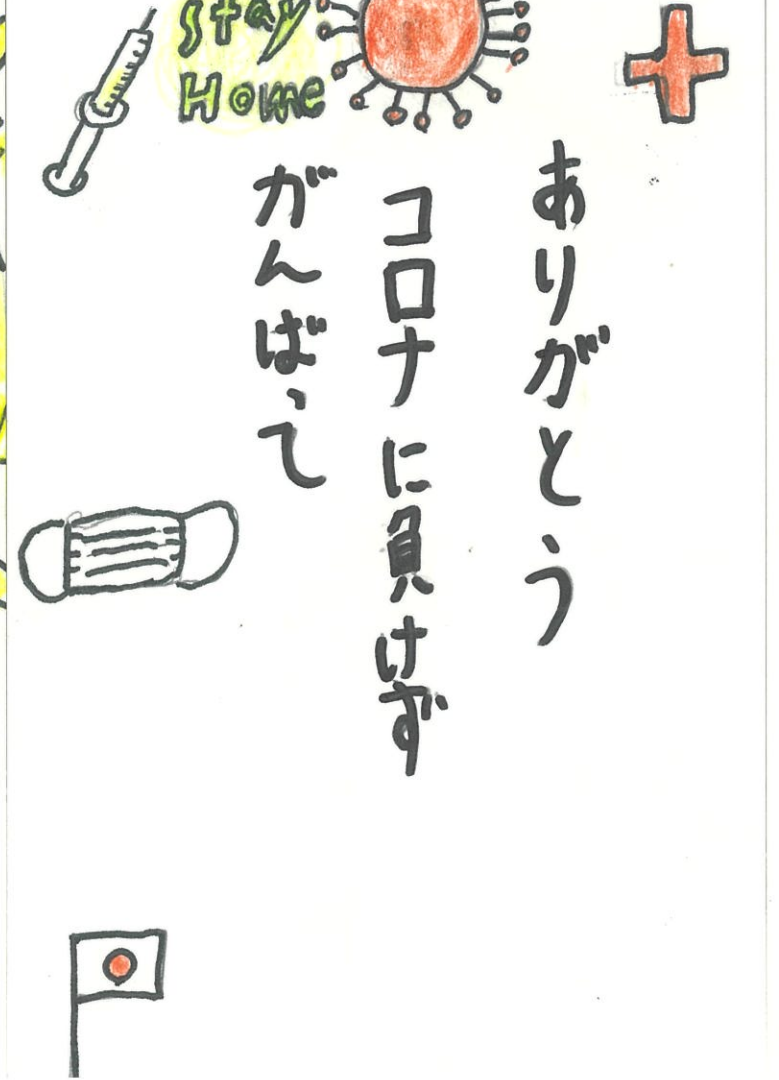 Stay
Home
ありがとう
コロナに負けず
がんばって